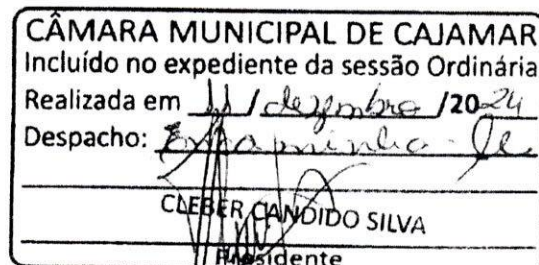 CÂMARA MUNICIPAL DE CAJAMAR
Incluído no expediente da sessão Ordinária
Realizada em 11 / dezembro / 2024
Despacho: Encaminha-se
CLEBER CANDIDO SILVA
Presidente